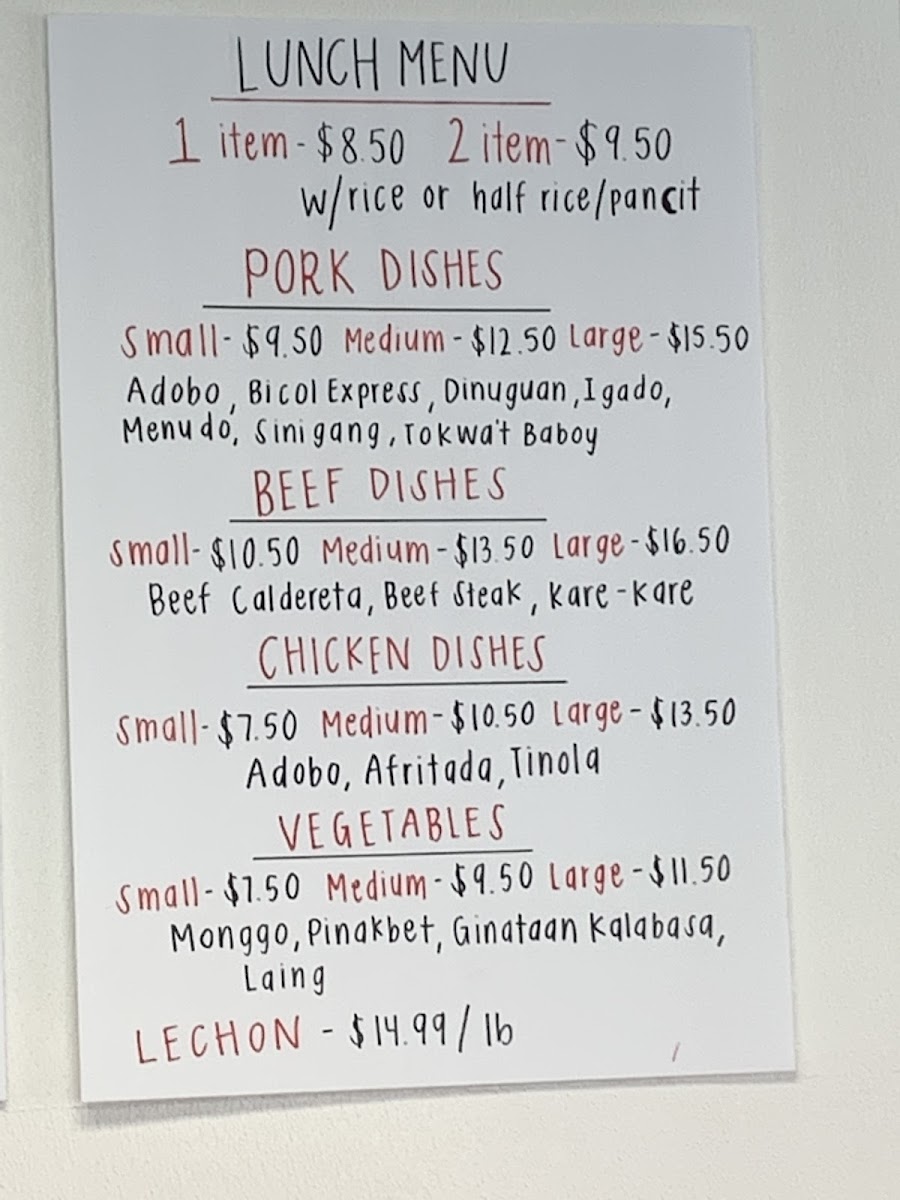 LUNCH MENU
1 item - $8.50 2 item - $9.50
w/rice or half rice/pancit
PORK DISHES
Small - $9.50 Medium - $12.50 Large - $15.50
Adobo, Bicol Express, Dinuguan, Igado,
Menudo, Sinigang, Tokwa't Baboy
BEEF DISHES
Small - $10.50 Medium - $13.50 Large - $16.50
Beef Caldereta, Beef Steak, Kare-Kare
CHICKEN DISHES
Small - $7.50 Medium - $10.50 Large - $13.50
Adobo, Afritada, Tinola
VEGETABLES
Small - $7.50 Medium - $9.50 Large - $11.50
Monggo, Pinakbet, Ginataan Kalabasa,
Laing
LECHON - $14.99/lb